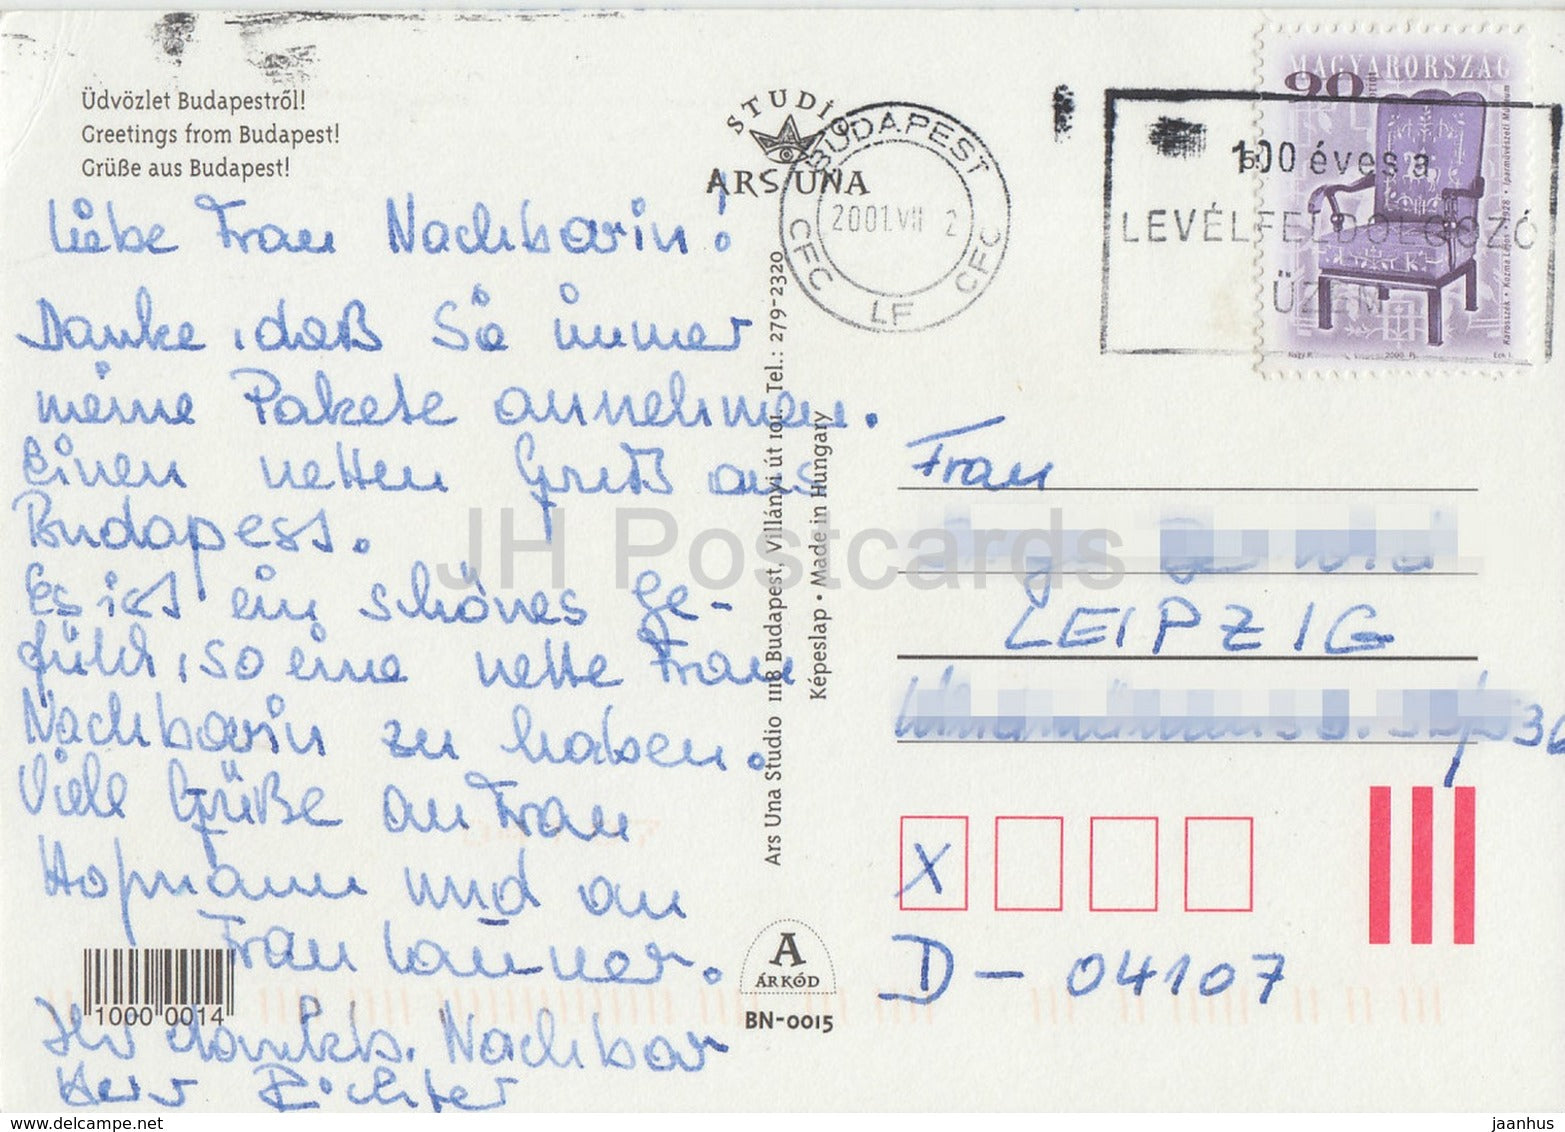 Üdvözlet Budapestről!
Greetings from Budapest!
Grüße aus Budapest!
STUDIO
ARS UNA
BUDAPEST
2001.VII 2
CFC LF CFC
100 éves a
LEVÉLFELDOLGOZÓ
ÜZEM
MAGYARORSZÁG
90
Liebe Frau Nachbarin!
Danke, daß Sie immer
meine Pakete annehmen.
Einen netten Gruß aus
Budapest.
Es ist ein schönes Ge-
fühl, so eine nette Frau
Nachbarin zu haben.
Viele Grüße an Frau
Hofmann und an
Frau
Ihr dankb. Nachbar
Herr Richter
Ars Una Studio 1118 Budapest, Villányi út 101. Tel.: 279-2320
Képeslap • Made in Hungary
Frau
LEIPZIG
36
X
D - 04107
1000 0014
A
ÁRKÓD
BN-0015
JH Postcards
www.delcampe.net
jaanhus